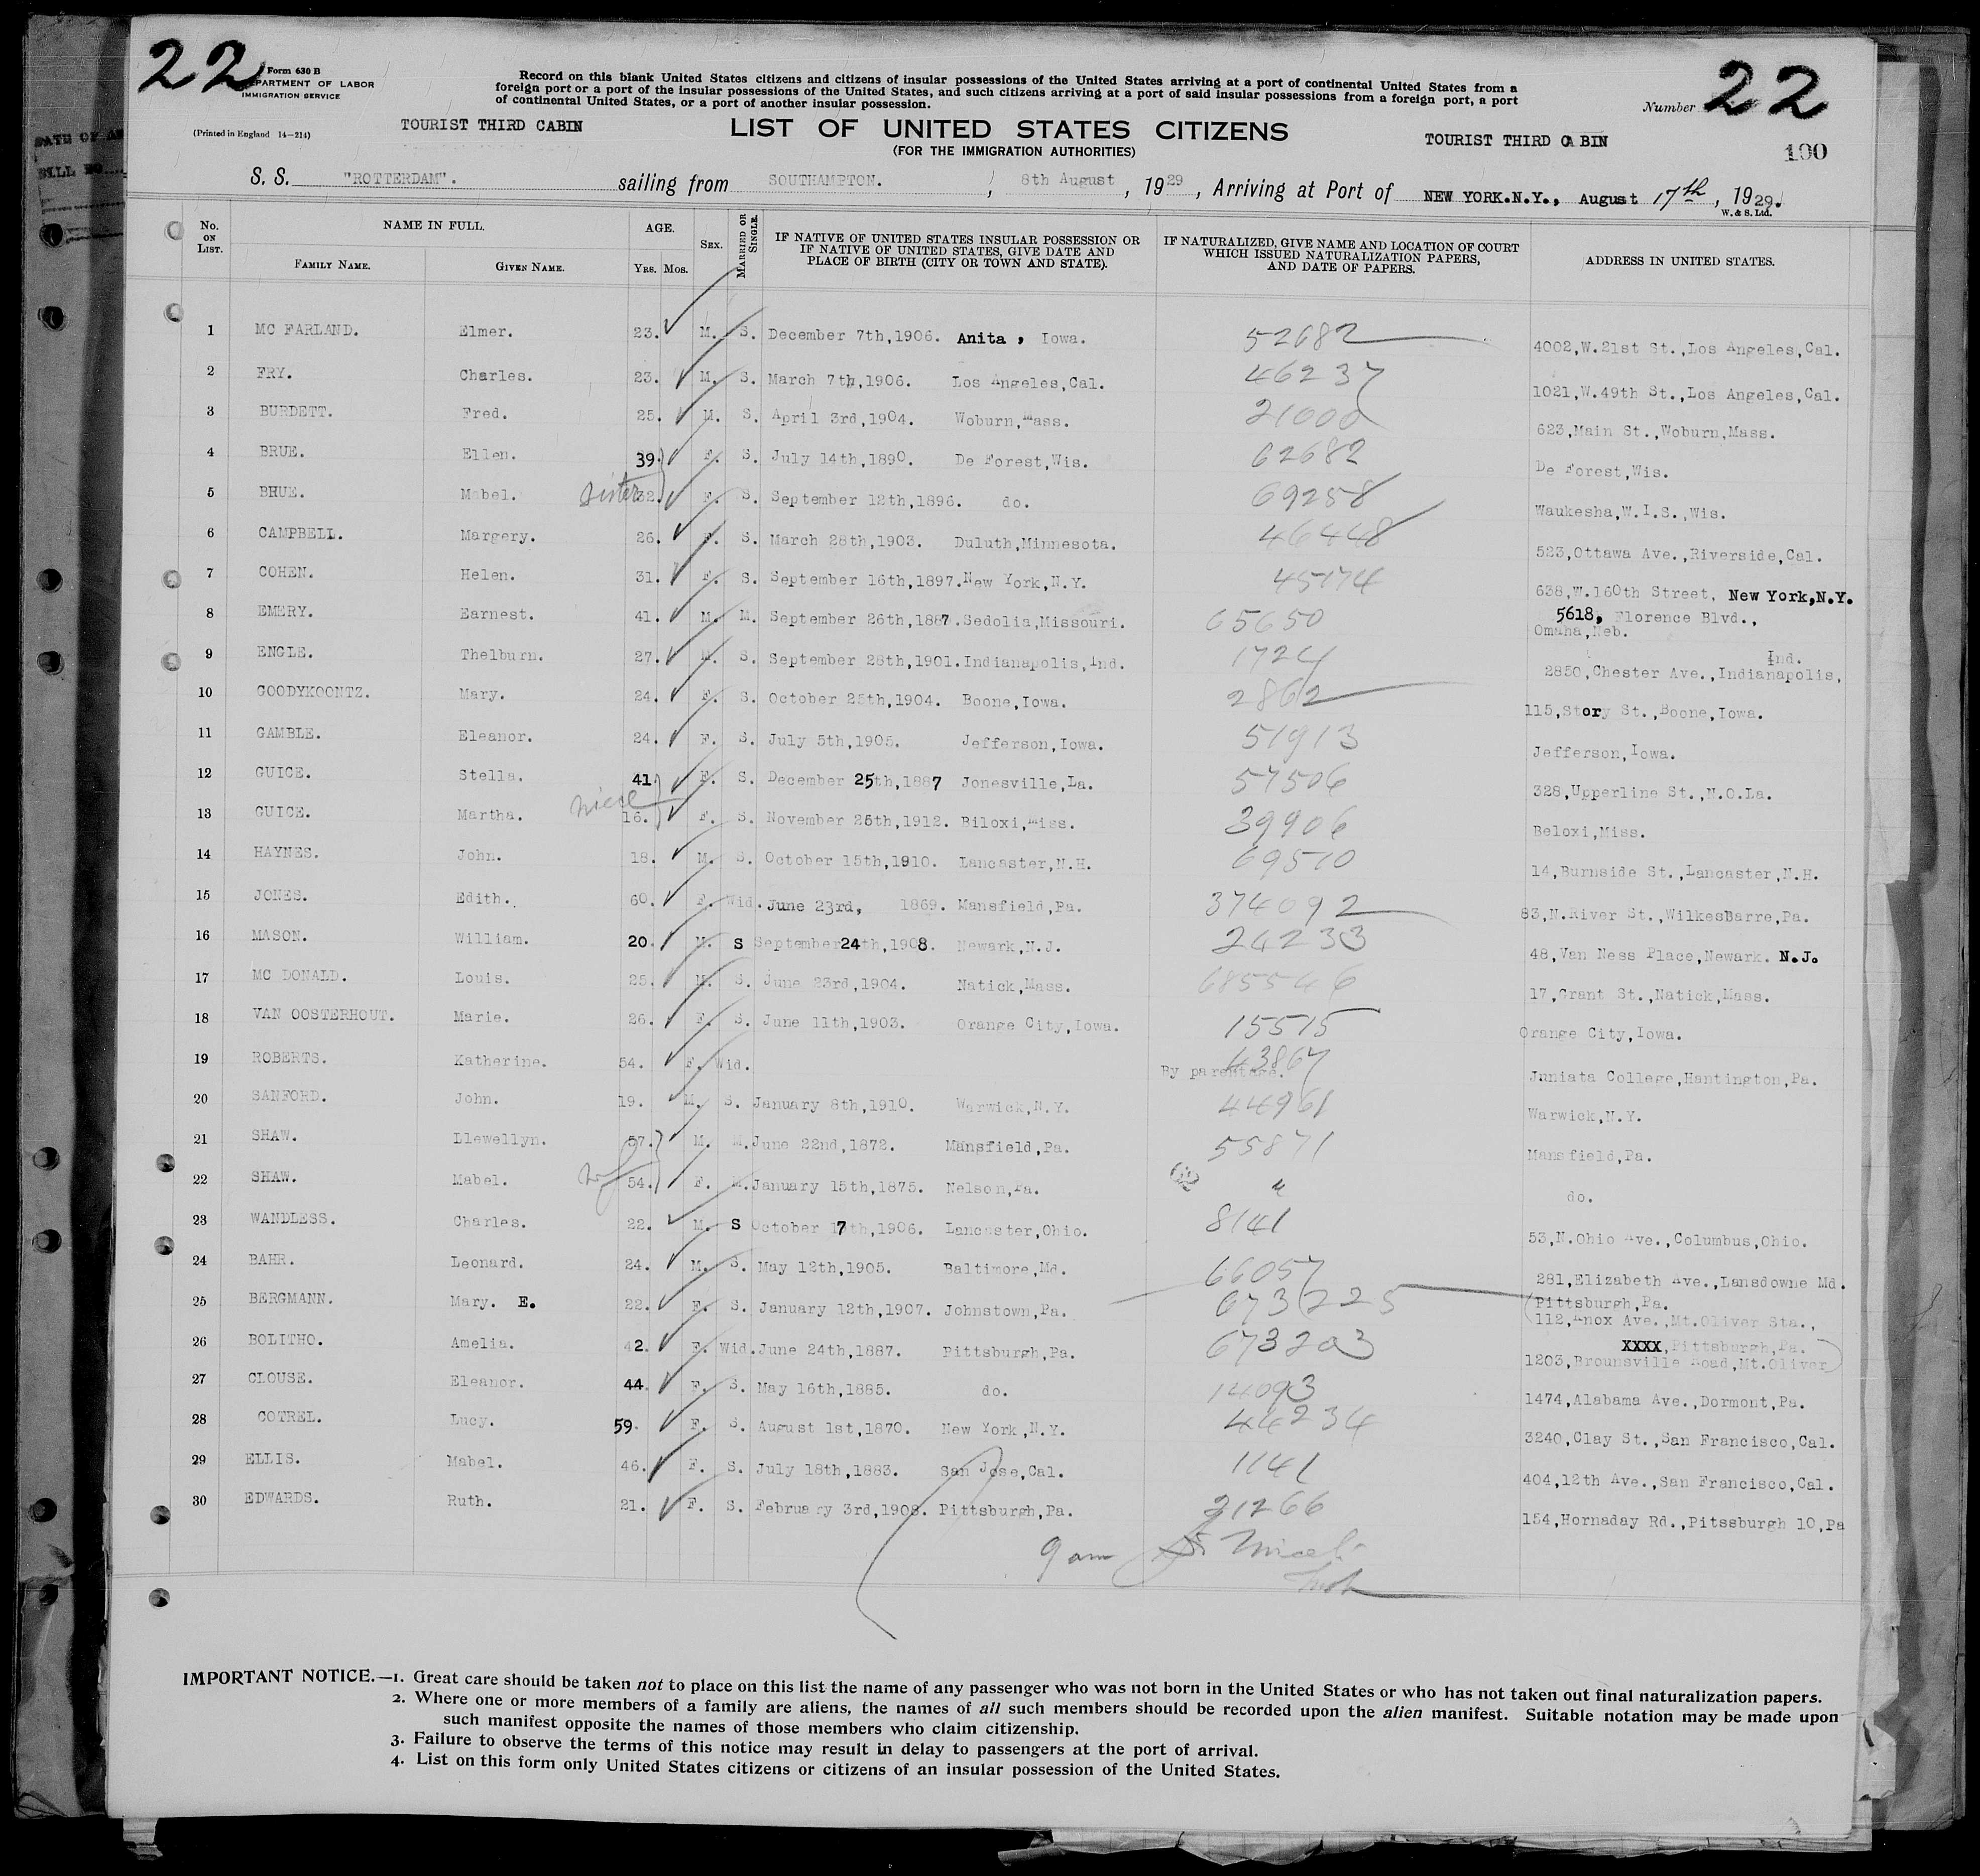 22
22
Form 630 B
DEPARTMENT OF LABOR
IMMIGRATION SERVICE
(Printed in England 14—214)
Record on this blank United States citizens and citizens of insular possessions of the United States arriving at a port of continental United States from a
foreign port or a port of the insular possessions of the United States, and such citizens arriving at a port of said insular possessions from a foreign port, a port
of continental United States, or a port of another insular possession.
Number
TOURIST THIRD CABIN LIST OF UNITED STATES CITIZENS TOURIST THIRD CABIN
(FOR THE IMMIGRATION AUTHORITIES)
100
S. S. "ROTTERDAM". sailing from SOUTHAMPTON. , 8th August , 1929 , Arriving at Port of NEW YORK.N.Y., August 17th , 1929.
W. & S. Ltd.
No. ON LIST. NAME IN FULL. FAMILY NAME. GIVEN NAME. AGE. YRS. MOS. SEX. MARRIED OR SINGLE. IF NATIVE OF UNITED STATES INSULAR POSSESSION OR IF NATIVE OF UNITED STATES, GIVE DATE AND PLACE OF BIRTH (CITY OR TOWN AND STATE). IF NATURALIZED, GIVE NAME AND LOCATION OF COURT WHICH ISSUED NATURALIZATION PAPERS, AND DATE OF PAPERS. ADDRESS IN UNITED STATES.
1 MC FARLAND. Elmer. 23. M. S. December 7th,1906. Anita, Iowa. 52682 4002,W.21st St.,Los Angeles,Cal.
2 FRY. Charles. 23. M. S. March 7th,1906. Los Angeles,Cal. 46237 1021,W.49th St.,Los Angeles,Cal.
3 BURDETT. Fred. 25. M. S. April 3rd,1904. Woburn,Mass. 21000 623,Main St.,Woburn,Mass.
4 BRUE. Ellen. 39. F. S. July 14th,1890. De Forest,Wis. 62682 De Forest,Wis.
5 BHUE. Mabel. sister 32. F. S. September 12th,1896. do. 69258 Waukesha,W.I.S.,Wis.
6 CAMPBELL. Margery. 26. F. S. March 28th,1903. Duluth,Minnesota. 46448 523,Ottawa Ave.,Riverside,Cal.
7 COHEN. Helen. 31. F. S. September 16th,1897. New York,N.Y. 45174 638,W.160th Street, New York,N.Y.
8 EMERY. Earnest. 41. M. M. September 26th,1887. Sedolia,Missouri. 65650 5618, Florence Blvd.,
Omaha,Neb.
9 ENGLE. Thelburn. 27. M. S. September 28th,1901. Indianapolis,Ind. 1724 2850,Chester Ave.,Indianapolis, Ind.
10 GOODYKOONTZ. Mary. 24. F. S. October 25th,1904. Boone,Iowa. 2862 115,Story St.,Boone,Iowa.
11 GAMBLE. Eleanor. 24. F. S. July 5th,1905. Jefferson,Iowa. 51913 Jefferson,Iowa.
12 GUICE. Stella. 41 F. S. December 25th,1887 Jonesville,La. 57506 328,Upperline St.,N.O.La.
13 GUICE. Martha. niece 16. F. S. November 26th,1912. Biloxi,Miss. 39906 Beloxi,Miss.
14 HAYNES. John. 18. M. S. October 15th,1910. Lancaster,N.H. 69510 14,Burnside St.,Lancaster,N.H.
15 JONES. Edith. 60. F. Wid. June 23rd, 1869. Mansfield,Pa. 374092 83,N.River St.,WilkesBarre,Pa.
16 MASON. William. 20. M. S September 24th,1908. Newark,N.J. 24233 48,Van Ness Place,Newark. N.J.
17 MC DONALD. Louis. 25. M. S. June 23rd,1904. Natick,Mass. 685546 17,Grant St.,Natick,Mass.
18 VAN OOSTERHOUT. Marie. 26. F. S. June 11th,1903. Orange City,Iowa. 15515 Orange City,Iowa.
19 ROBERTS. Katherine. 54. F. Wid. By parentage. 43867 Juniata College,Hantington,Pa.
20 SANFORD. John. 19. M. S. January 8th,1910. Warwick,N.Y. 44961 Warwick,N.Y.
21 SHAW. Llewellyn. 57. M. M. June 22nd,1872. Mansfield,Pa. 55871 Mansfield,Pa.
22 SHAW. Mabel. 54. F. M. January 15th,1875. Nelson,Pa. " do.
23 WANDLESS. Charles. 22. M. S October 17th,1906. Lancaster,Ohio. 8141 53,N.Ohio Ave.,Columbus,Ohio.
24 BAHR. Leonard. 24. M. S. May 12th,1905. Baltimore,Md. 66057 281,Elizabeth Ave.,Lansdowne Md.
25 BERGMANN. Mary. E. 22. F. S. January 12th,1907. Johnstown,Pa. 673225 Pittsburgh,Pa.
112,Knox Ave.,Mt.Oliver Sta.,
26 BOLITHO. Amelia. 42. F. Wid. June 24th,1887. Pittsburgh,Pa. 673203 XXXX,Pittsburgh,Pa.
1203,Brounsville Road,Mt.Oliver
27 CLOUSE. Eleanor. 44. F. S. May 16th,1885. do. 14093 1474,Alabama Ave.,Dormont,Pa.
28 COTREL. Lucy. 59. F. S. August 1st,1870. New York,N.Y. 44234 3240,Clay St.,San Francisco,Cal.
29 ELLIS. Mabel. 46. F. S. July 18th,1883. San Jose,Cal. 1141 404,12th Ave.,San Francisco,Cal.
30 EDWARDS. Ruth. 21. F. S. February 3rd,1908. Pittsburgh,Pa. 21266 154,Hornaday Rd.,Pitssburgh 10,Pa
9 am
IMPORTANT NOTICE.—1. Great care should be taken not to place on this list the name of any passenger who was not born in the United States or who has not taken out final naturalization papers.
2. Where one or more members of a family are aliens, the names of all such members should be recorded upon the alien manifest. Suitable notation may be made upon
such manifest opposite the names of those members who claim citizenship.
3. Failure to observe the terms of this notice may result in delay to passengers at the port of arrival.
4. List on this form only United States citizens or citizens of an insular possession of the United States.